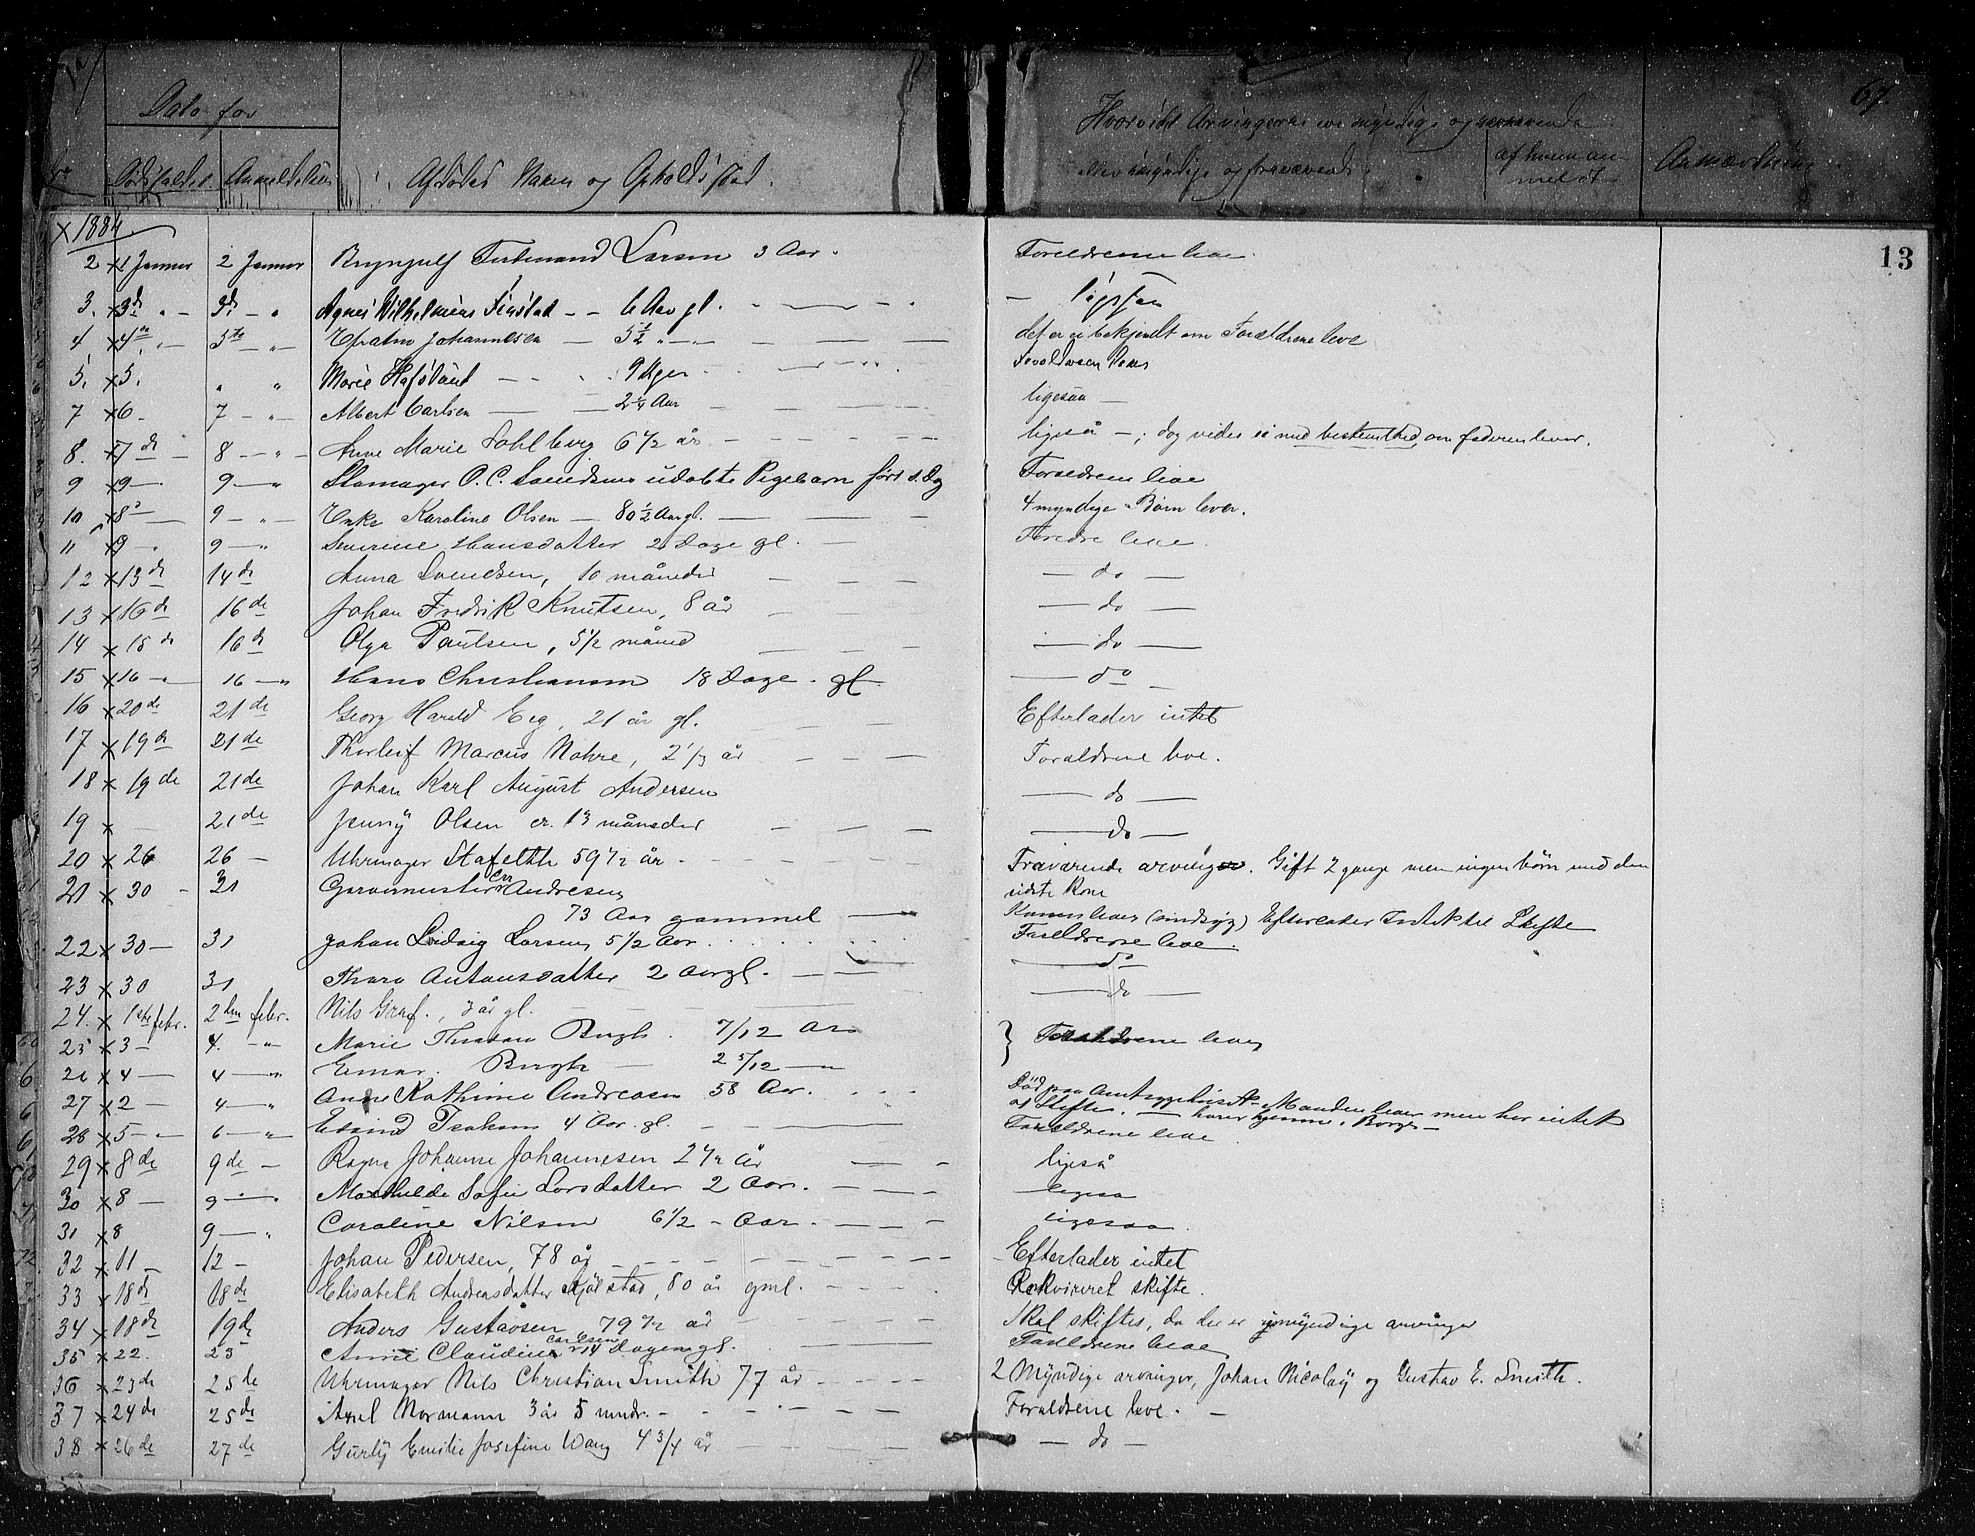 Dato for
Dødsfaldet. Anmeldelsen
Afdødes Navn og Opholdssted.
Hvorvidt Arvingerne ere myndige og nærværende
eller umyndige og fraværende.
af hvem an-
meldt
Anmærkning
67.
13
x 1884.
2 x 1 Januar 2 Januar Brynjulf Ferdinand Larsen 3 Aar. Forældrene leve.
3. x 3de 3de Agnes Vilhelmine Finstad 6 Aar gl. ligesaa
4 x 4de 5te Johannesen 5 1/2 det er ei bekjendt om Forældrene leve
5. x 5. Marie Hafslund 9 Uger
7 x 6 7 Albert Carlsen 2 1/4 Aar ligesaa
8. x 7de 8 Anne Marie Dahlberg 6 1/2 år ligeså ; dog vides ei med bestemthed om faderen lever.
9 x 9 9 Slomager O. C. udøbte Pigebarn født d. Dag Forældrene leve
10 x 8 9 Enke Karoline Olsen 80 1/2 Aar gl. 4 myndige Børn lever.
11 x 9 9 Severine Hansdatter 2 Dage gl. leve
12 x 13de 14de Anna Svendsen, 10 måneder do
13 x 16de 16de Johan Fredrik Knutsen, 8 år do
14 x 15de 16de Olga Paulsen, 5 1/2 måned do
15 x 16 16 Hans Christiansen 18 Dage gl do
16 x 20de 21de Georg Harald Eeg, 21 år gl. Efterlader intet
17 x 19de 21de Thorleif Marcus Nohre, 2 1/3 år Forældrene leve.
18 x 19de 21de Johan Karl August Andersen do
19 x 21de Jenny Olsen ca. 13 måneder do
20 x 26 26 Uhrmager Stafeldth 59 1/2 år. Fraværende arvinger. Gift 2 gange men ingen børn med den
sidste Kone
21 x 30 31 Garvermester Andresen
73 Aar gammel Konen lever (sindsyg) Efterlader Intet til Skifte
22 x 30 31 Johan Ludvig Larsen 5 1/2 Aar. Forældrene leve.
23 x 30 31 Thora Antonsdatter 2 Aar gl. do
24. x 1ste febr. 2den febr. Nils Graf., 3 år gl. do
25 x 3 4. Marie Bugh. 7/12 Aar } Forældrene leve
26 x 4 4 Einar Bugh 2 5/12
27 x 2 4 Anne Kathrine Andreasen 58 Aar. Død paa Amtssygehuset. Manden lever men har intet
at Skifte. hører hjemme i Borge
28 x 5 6 4 Aar gl. Forældrene leve
29 x 8de 9de Ragna Johanne Johannesen 2 1/2 år ligeså
30 x 8 9 Mathilde Sofie Larsdatter 2 Aar. ligesaa
31 x 8 9 Caroline Nilsen 6 1/2 Aar. ligesaa
32 x 11 12 Johan Pedersen, 78 år Efterlader intet
33 x 18de 18de Elisabeth Andreasdatter Kjølstad, 80 år gml. Rekvireret skifte.
34 x 18de 19de Anders Gustavsen 79 1/2 år Skal skiftes, da der er umyndige arvinger
35 x 22. 23 Anne Claudine Carlsen 14 Dage gl. Forældrene leve
36 x 23de 25de Uhrmager Nils Christian Smith 77 år 2 Myndige arvinger, Johan Nicolay og Gustav E. Smith.
37 x 24de 25de Axel Normann 3 år 5 mndr. Forældrene leve.
38 x 26de 27de Gurly Emilie Josefine Wang 4 3/4 år do